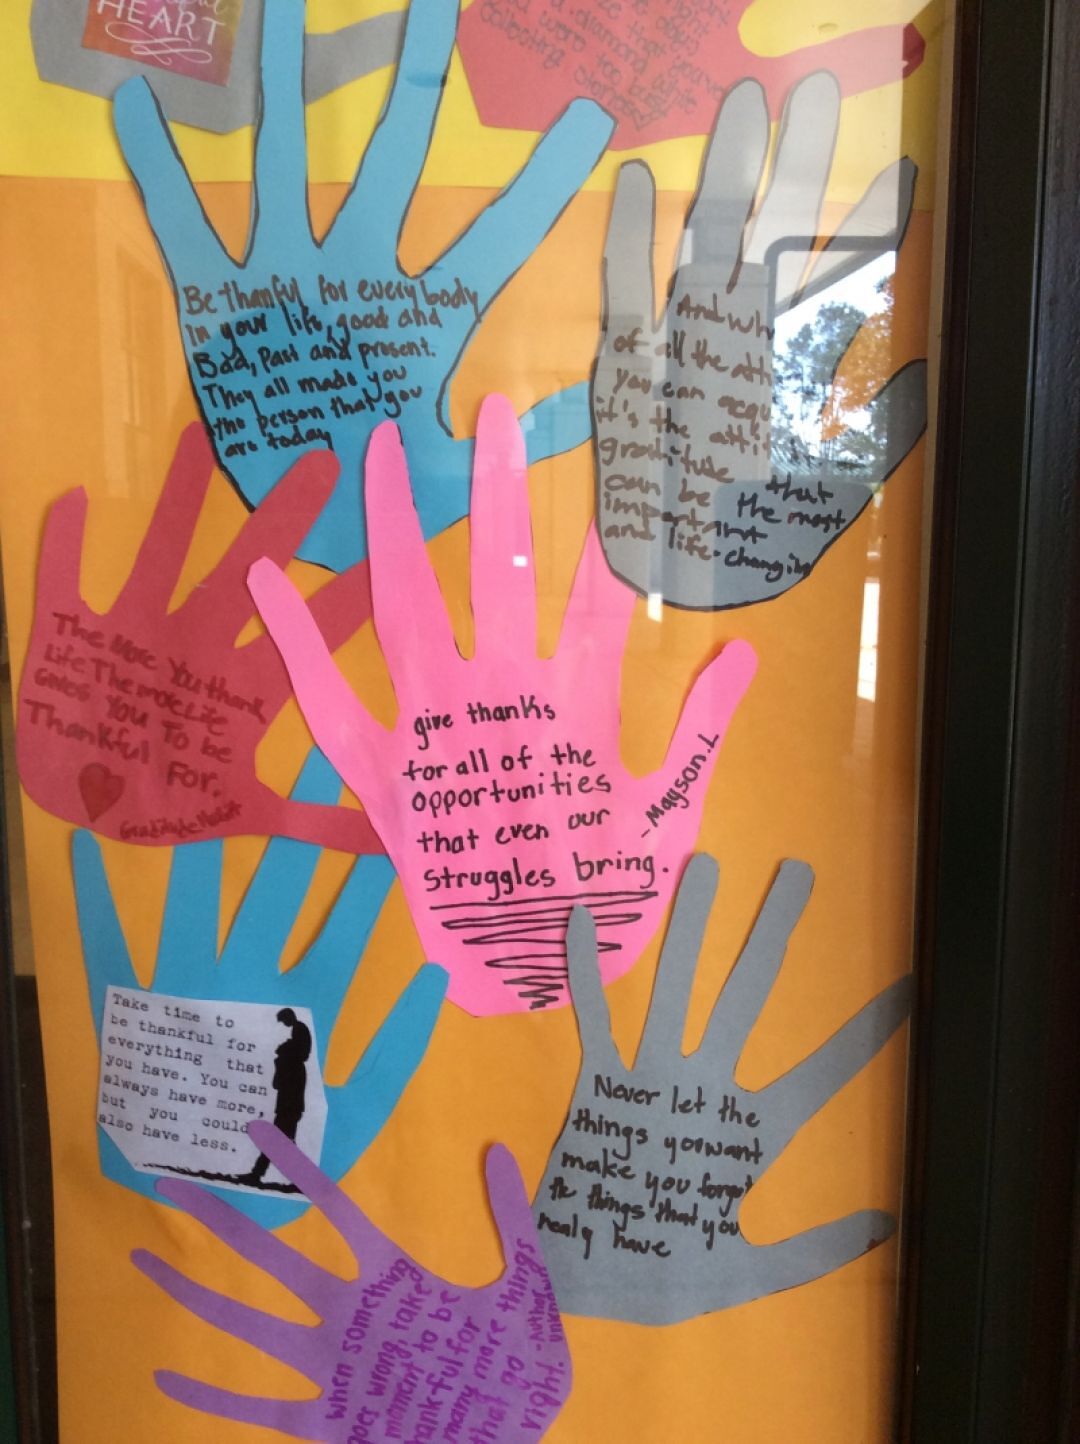 HEART
light
that you've
a diamond while
were too busy
collecting stones
Be thanful for every body
In your life, good and
Bad, past and present.
They all made you
the person that you
are today
And
of all the
you can
it's the
gratitude that
can be the most
important
and life-changing
The More You thank
Life The more Life
Gives You To be
Thankful For.
Gratitude Habit
give thanks
for all of the
opportunities
that even our
struggles bring.
- Mayson.L
Take time to
be thankful for
everything that
you have. You can
always have more,
but you could
also have less.
Never let the
things you want
make you forget
the things that you
realy have
when something
goes wrong, take a
moment to be
thankful for
many more things
that go
right. -Author
unknown